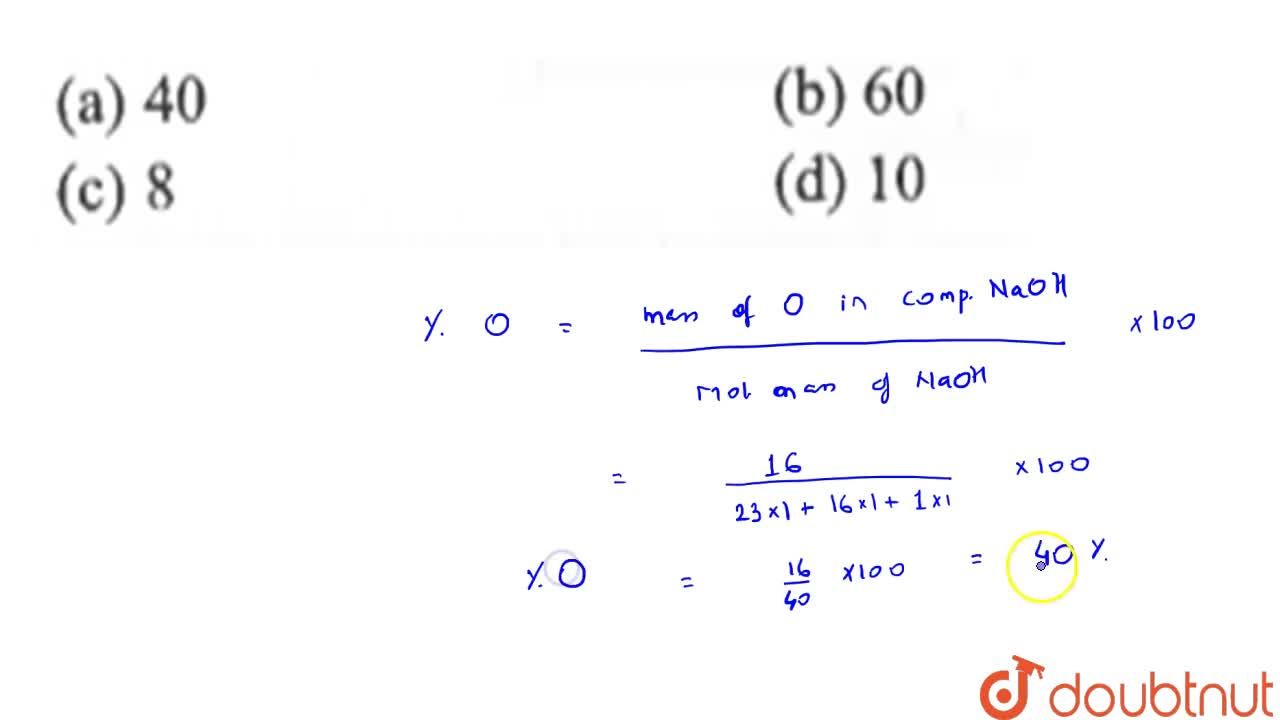 (a) 40 (b) 60
(c) 8 (d) 10
% O = mass of O in comp. NaOH × 100
Mol mass of NaOH
= 16 × 100
23×1 + 16×1 + 1×1
% O = 16 ×100 = 40 %
40
doubtnut